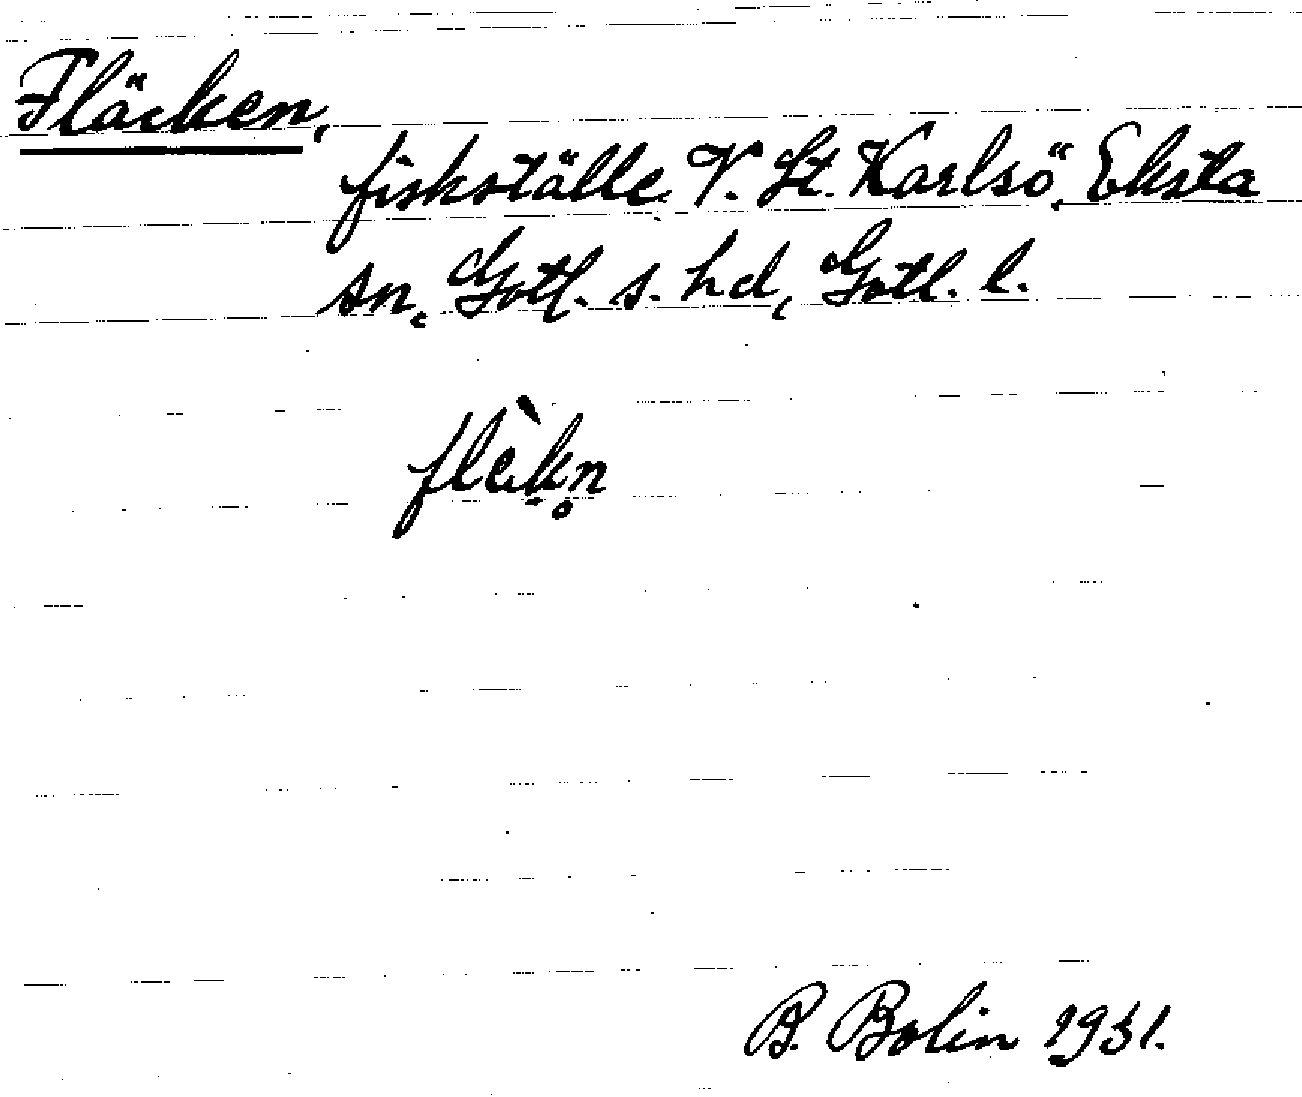 Fläcken,
fiskställe V. St. Karlsö, Eksta
sn, Gotl. s. hd, Gotl. l.
flèk̠n̥
B. Bolin 1931.